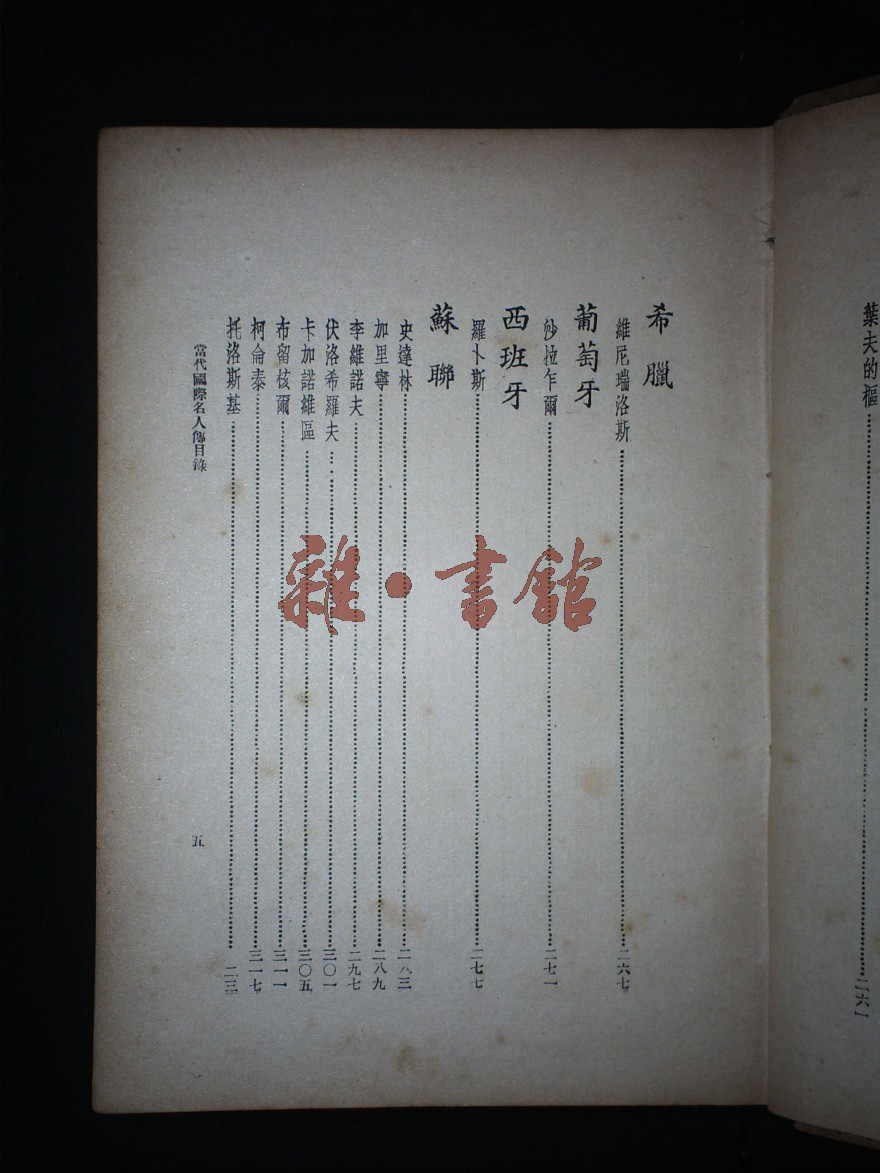 葉夫的樞……二六一
希臘
維尼瑞洛斯……二六七
葡萄牙
沙拉乍爾……二七一
西班牙
羅卜斯……二七七
蘇聯
史達林……二八三
加里寧……二八九
李維諾夫……二九七
伏洛希羅夫……三〇一
卡加諾維區……三〇五
布留核爾……三一一
柯侖泰……三一七
托洛斯基……二三
當代國際名人傳目錄
五
雜·書館